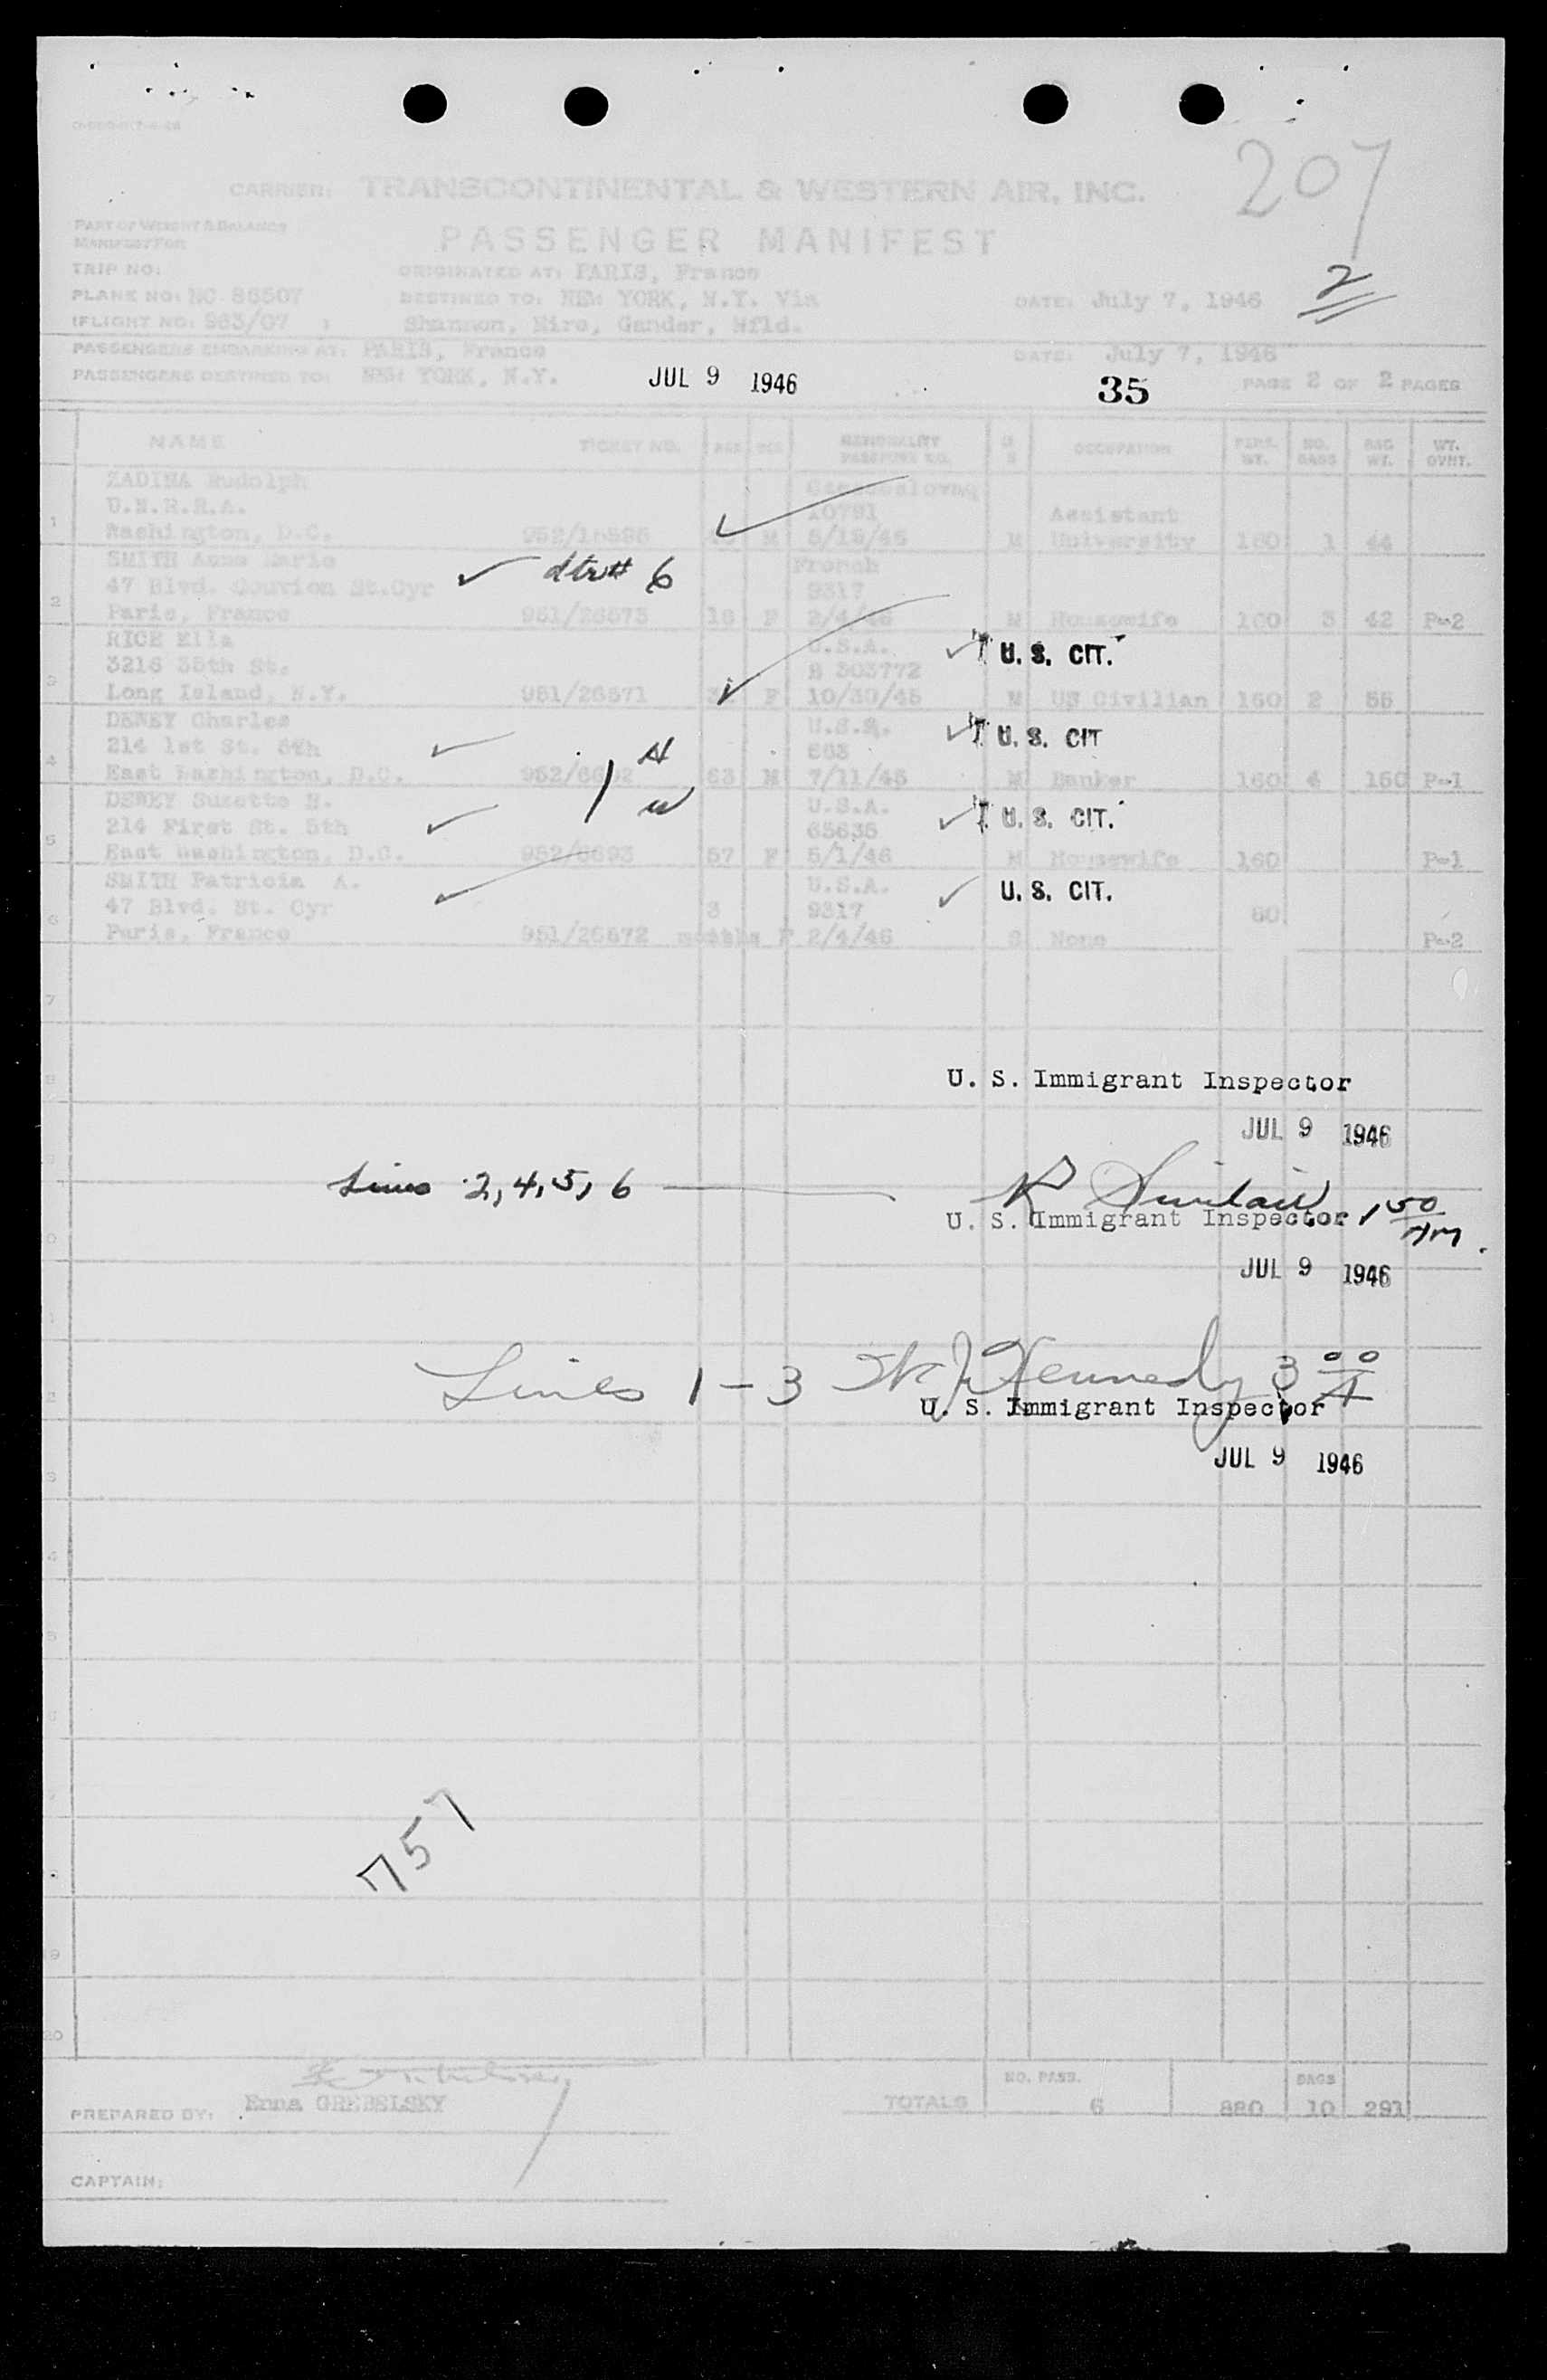 207
CARRIER: TRANSCONTINENTAL & WESTERN AIR, INC.
PART OF WEIGHT & BALANCE
MANIFEST FOR
PASSENGER MANIFEST
2
TRIP NO: ORIGINATED AT: PARIS, France
PLANE NO: NC 86507 DESTINED TO: NEW YORK, N.Y. Via DATE: July 7, 1946
FLIGHT NO: 963/07 Shannon, Eire, Gander, Nfld.
PASSENGERS EMBARKING AT: PARIS, France DATE: July 7, 1946
PASSENGERS DESTINED TO: NEW YORK, N.Y. JUL 9 1946 35 PAGE 2 OF 2 PAGES
NAME TICKET NO. AGE SEX NATIONALITY PASSPORT NO. M S OCCUPATION PERS. WT. NO. BAGS BAG WT. WT. OVHT.
ZADINA Rudolph
U.N.R.R.A. 10791 Assistant
1 Washington, D.C. M 5/19/45 M University 160 1 44
SMITH Anne Marie French
47 Blvd. Gouvion St.Cyr dtr# 6 9317
2 Paris, France 951/26573 18 F 2/4/46 M Housewife 160 3 42 P-2
RICE Ella U.S.A. U. S. CIT.
3216 35th St. B 303772
3 Long Island, N.Y. 951/26571 F 10/30/45 M US Civilian 160 2 55
DEWEY Charles U.S.A. U. S. CIT
214 1st St. 5th H 663
4 East Washington, D.C. 63 M 7/11/45 M Banker 160 4 150 P-1
DEWEY Suzette H. W U.S.A.
214 First St. 5th 65635 U. S. CIT.
5 East Washington, D.C. 952/6693 57 F 5/1/46 M Housewife 160 P-1
SMITH Patricia A. U.S.A. U. S. CIT.
47 Blvd. St. Cyr 3 9317 80
6 Paris, France 951/26572 months F 2/4/46 S None P-2
7
8 U. S. Immigrant Inspector
JUL 9 1946
Lines 2, 4, 5, 6 R Sinclair
U. S. Immigrant Inspector 1 50 AM.
JUL 9 1946
Lines 1 - 3 Kennedy 3 00 A
U. S. Immigrant Inspector
JUL 9 1946
757
20
NO. PASS. BAGS
PREPARED BY: Enna GREBELSKY TOTALS 6 880 10 291
CAPTAIN: